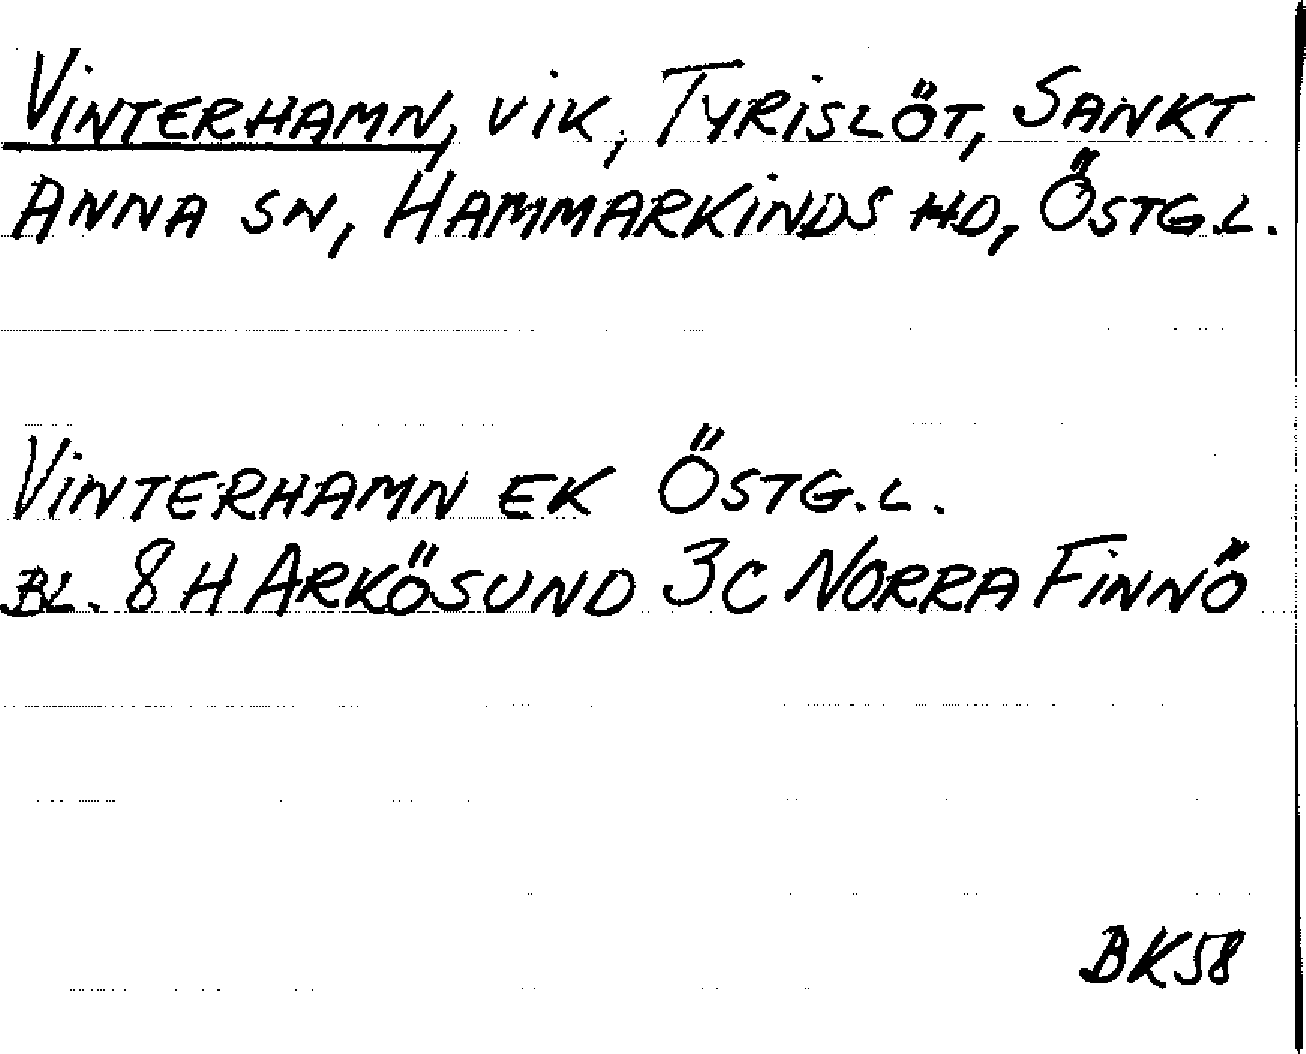 VINTERHAMN, VIK, TYRISLÖT, SANKT
ANNA SN, HAMMARKINDS HD, ÖSTG.L.
VINTERHAMN EK ÖSTG.L.
BL. 8 H ARKÖSUND 3C NORRA FINNÖ
BK58